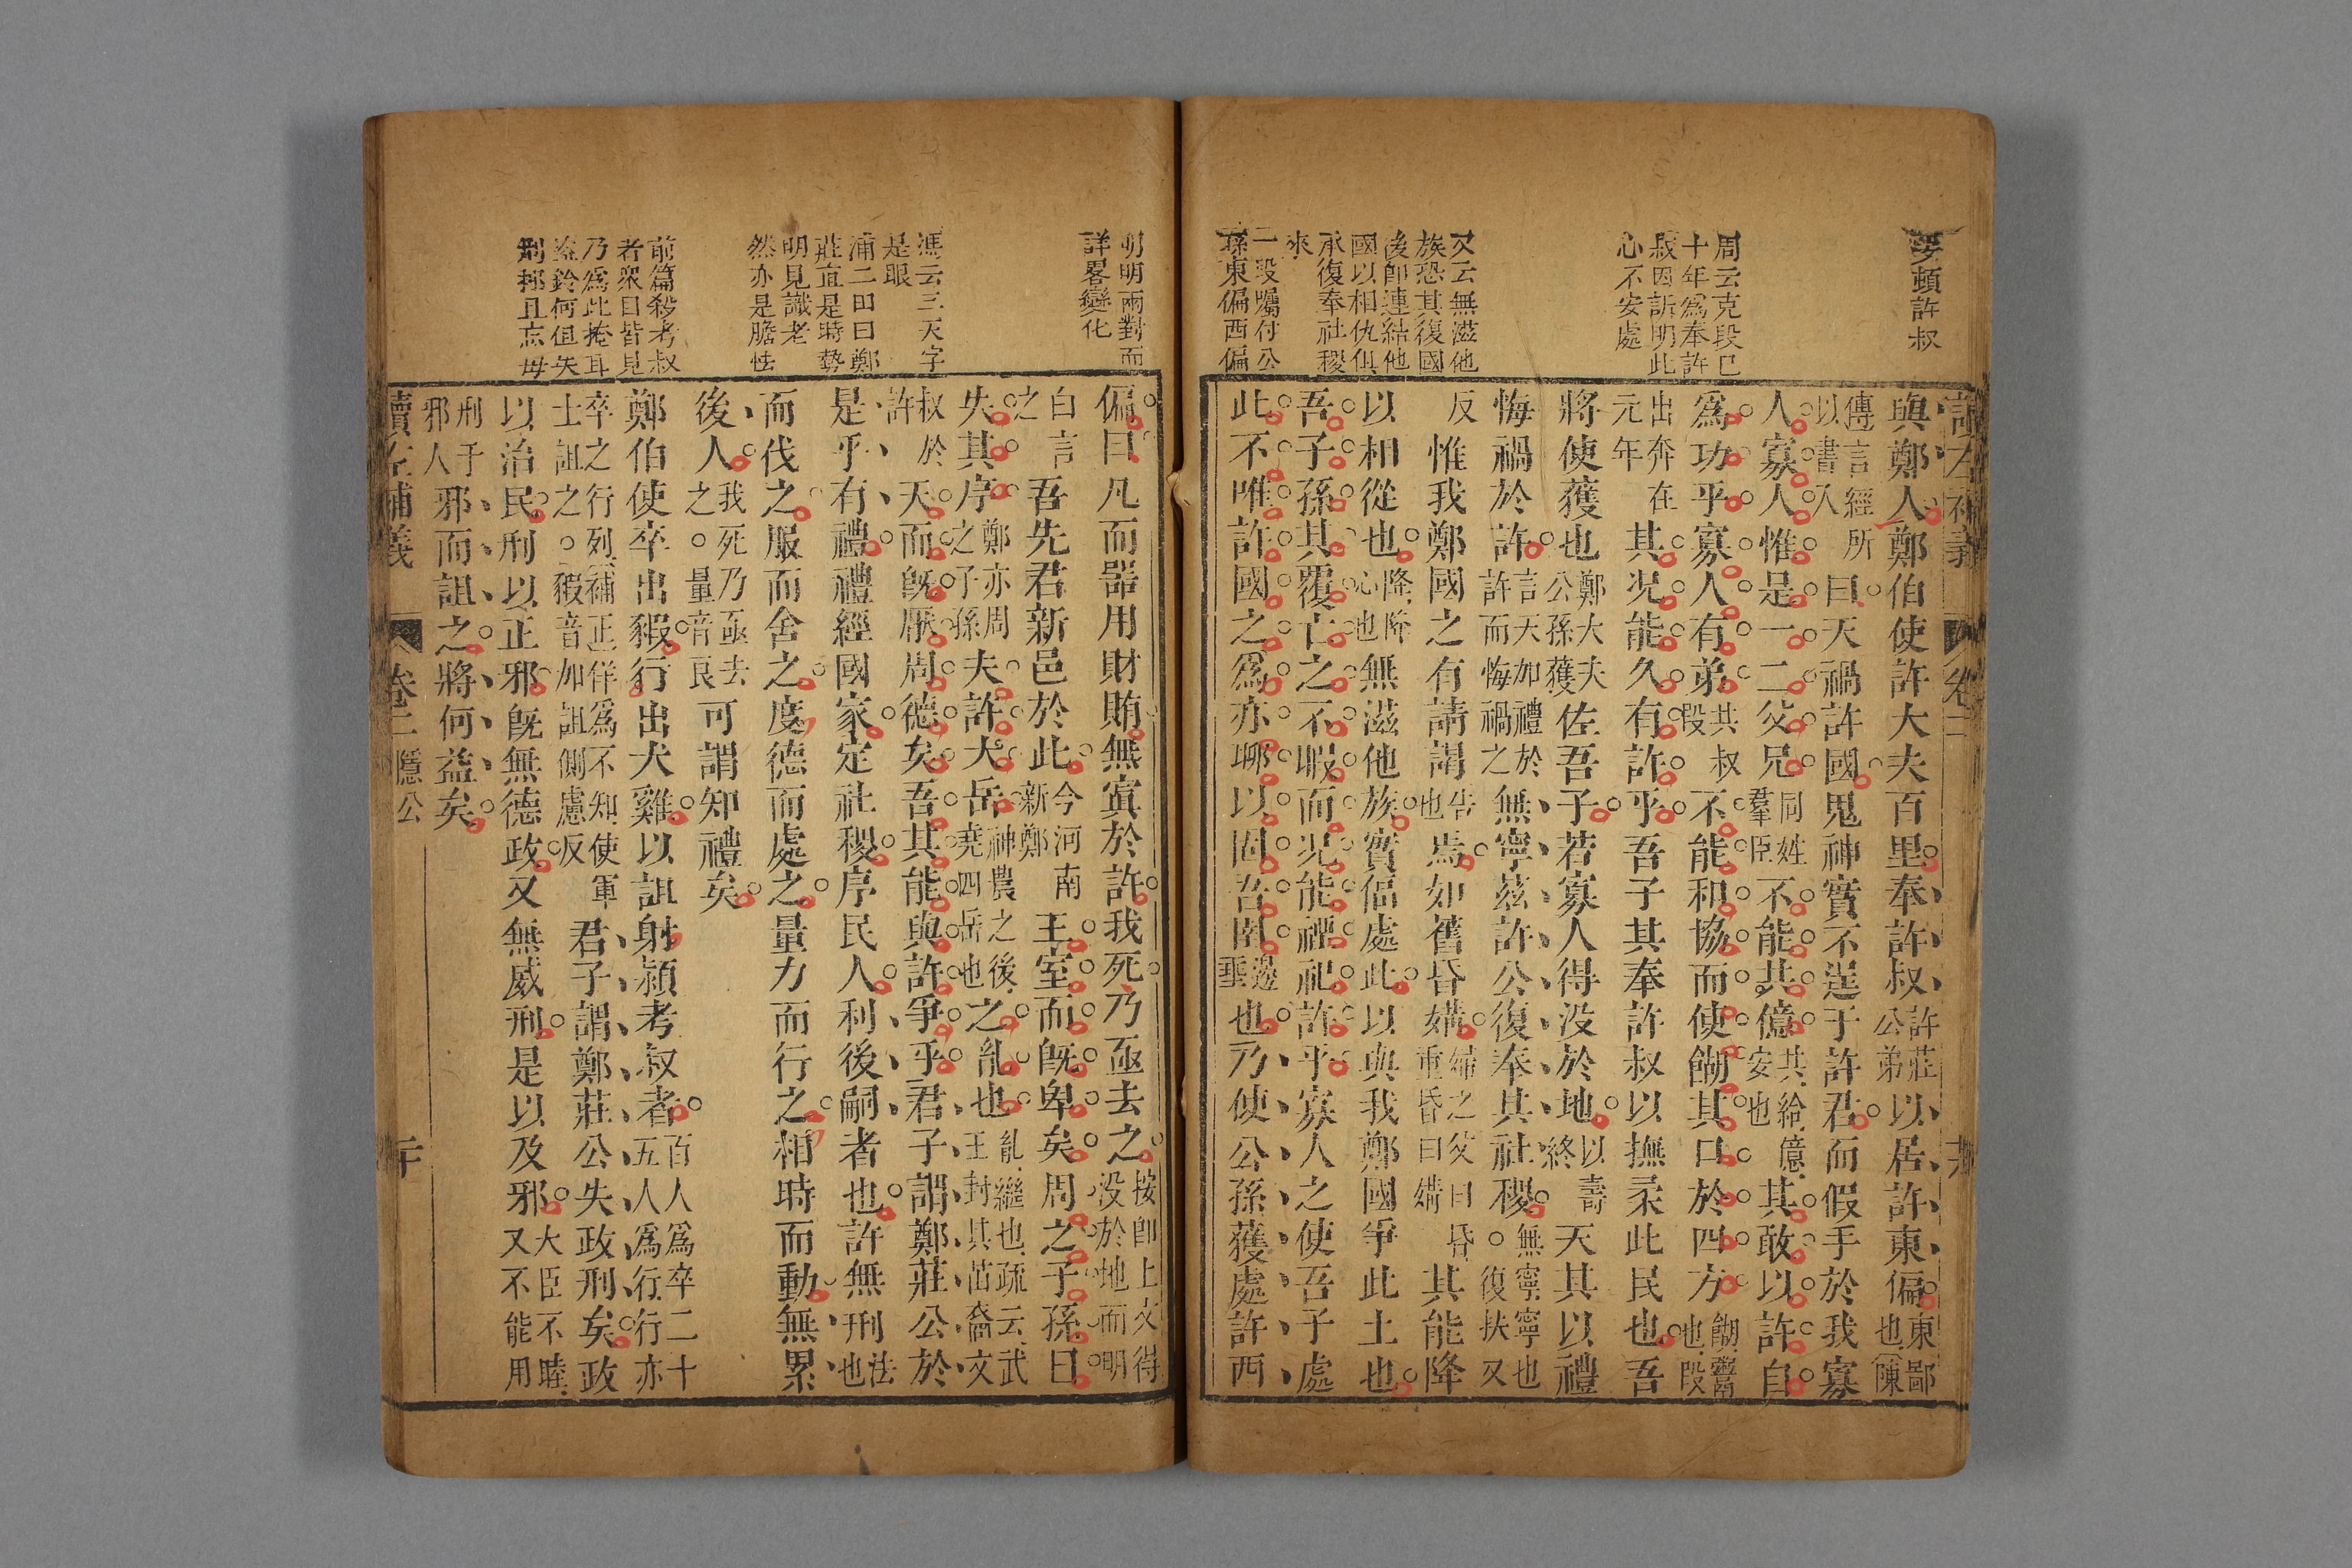 妥頓許叔
周云克段已
十年爲奉許
叔因訴明此
心不安處
又云無滋他
族恐其復國
後卽連結他
國以相仇俱
承復奉社稷
來
二段囑付公
孫東偏西偏
讀左補義
卷二
與鄭人鄭伯使許大夫百里奉許叔許莊公弟以居許東偏東鄙也陳
傳言經所以書入曰天禍許國鬼神實不逞于許君而假手於我寡
人寡人惟是一二父兄同姓羣臣不能共億共給億安也其敢以許自
爲功乎寡人有弟其叔段不能和協而使餬其口於四方餬鬻也段
出奔在元年其況能久有許乎吾子其奉許叔以撫柔此民也吾
將使獲也鄭大夫公孫獲佐吾子若寡人得没於地以壽終天其以禮
悔禍於許言天加禮於許而悔禍之無寧茲許公復奉其社稷無寧寧也○復扶又
反惟我鄭國之有請謁告也焉如舊昏媾婦之父曰昏重昏曰媾其能降
以相從也降降心也無滋他族實偪處此以與我鄭國爭此土也
吾子孫其覆亡之不暇而況能禋祀許乎寡人之使吾子處
此不唯許國之爲亦聊以固吾圉邊垂也乃使公孫獲處許西
明明兩對而
詳畧變化
馮云三天字
是眼
浦二田曰鄭
莊直是時勢
明見識老
然亦是膽怯
前篇殺考叔
者衆目皆見
乃爲此掩耳
盜鈴何但失
刑拯且忘母
偏曰凡而器用財賄無寘於許我死乃亟去之按卽上文得没於地而明
白言之吾先君新邑於此今河南新鄭王室而旣卑矣周之子孫日
失其序鄭亦周之子孫夫許大岳神農之後堯四岳也之亂也亂繼也疏云武王封其苗裔文
叔於許天而旣厭周德矣吾其能與許爭乎君子謂鄭莊公於
是乎有禮禮經國家定社稷序民人利後嗣者也許無刑法也
而伐之服而舍之度德而處之量力而行之相時而動無累
後人我死乃亟去之○量音良可謂知禮矣
鄭伯使卒出豭行出犬雞以詛射潁考叔者百人爲卒二十五人爲行行亦
卒之行列補正佯爲不知使軍士詛之○豭音加詛側慮反君子謂鄭莊公失政刑矣政
以治民刑以正邪旣無德政又無威刑是以及邪大臣不睦又不能用
刑于邪人邪而詛之將何益矣
讀左補義
卷二
隱公
二十